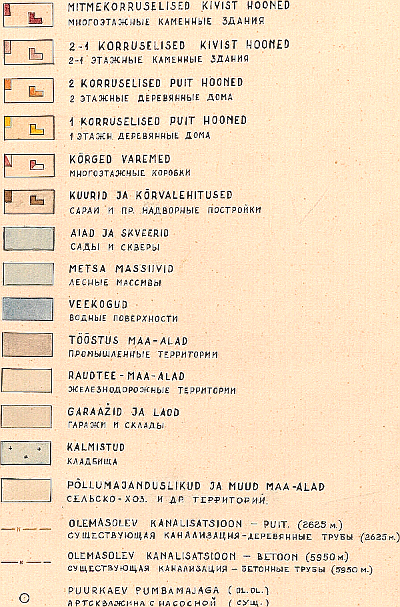 MITMEKORRUSELISED KIVIST HOONED
МНОГОЭТАЖНЫЕ КАМЕННЫЕ ЗДАНИЯ
2-1 KORRUSELISED KIVIST HOONED
2-1 ЭТАЖНЫЕ КАМЕННЫЕ ЗДАНИЯ
2 KORRUSELISED PUIT HOONED
2 ЭТАЖНЫЕ ДЕРЕВЯННЫЕ ДОМА
1 KORRUSELISED PUIT HOONED
1 ЭТАЖН. ДЕРЕВЯННЫЕ ДОМА
KÕRGED VAREMED
МНОГОЭТАЖНЫЕ КОРОБКИ
KUURID JA KÕRVALEHITUSED
САРАИ И ПР. НАДВОРНЫЕ ПОСТРОЙКИ
AIAD JA SKVEERID
САДЫ И СКВЕРЫ
METSA MASSIIVID
ЛЕСНЫЕ МАССИВЫ
VEEKOGUD
ВОДНЫЕ ПОВЕРХНОСТИ
TÖÖSTUS MAA-ALAD
ПРОМЫШЛЕННЫЕ ТЕРРИТОРИИ
RAUDTEE-MAA-ALAD
ЖЕЛЕЗНОДОРОЖНЫЕ ТЕРРИТОРИИ
GARAAŽID JA LAOD
ГАРАЖИ И СКЛАДЫ
KALMISTUD
КЛАДБИЩА
PÕLLUMAJANDUSLIKUD JA MUUD MAA-ALAD
СЕЛЬСКО-ХОЗ. И ДР ТЕРРИТОРИЙ.
OLEMASOLEV KANALISATSIOON – PUIT. (2625 M.)
СУЩЕСТВУЮЩАЯ КАНАЛИЗАЦИЯ-ДЕРЕВЯННЫЕ ТРУБЫ (2625 м.)
OLEMASOLEV KANALISATSIOON – BETOON (5950 M.)
СУЩЕСТВУЮЩАЯ КАНАЛИЗАЦИЯ - БЕТОННЫЕ ТРУБЫ (5950 м.)
PUURKAEV PUMBAMAJAGA (OL.OL.)
АРТСКВАЖИНА С НАСОСНОЙ (СУЩ.)